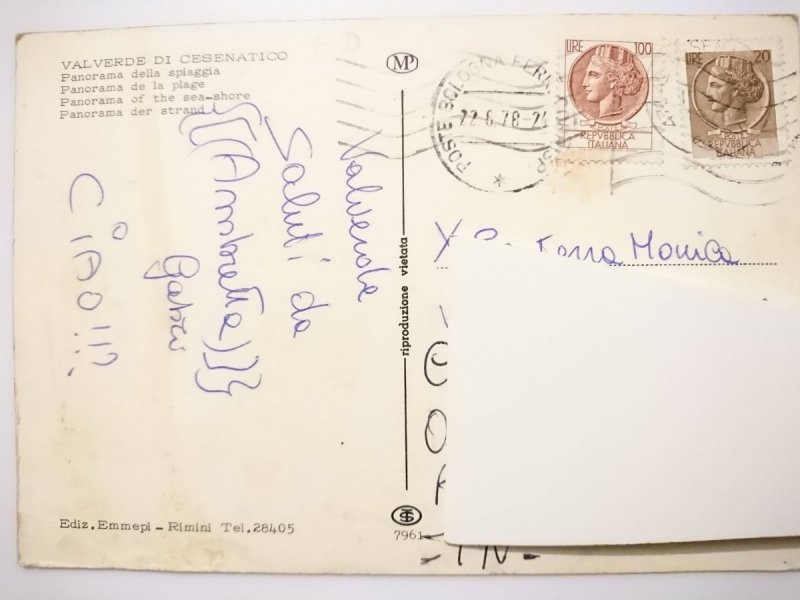 VALVERDE DI CESENATICO
Panorama della spiaggia
Panorama de la plage
Panorama of the sea-shore
Panorama der strand
MP
POSTE BOLOGNA FERR
22.6.78-2
LIRE 100
REPVBBLICA
ITALIANA
LIRE 20
REPVBBLICA
ITALIANA
Valverde
Saluti da
(((Ambretta)))
Gabri
CIAO!!!
riproduzione vietata
Monica
Ediz. Emmepi - Rimini Tel. 28405
7961